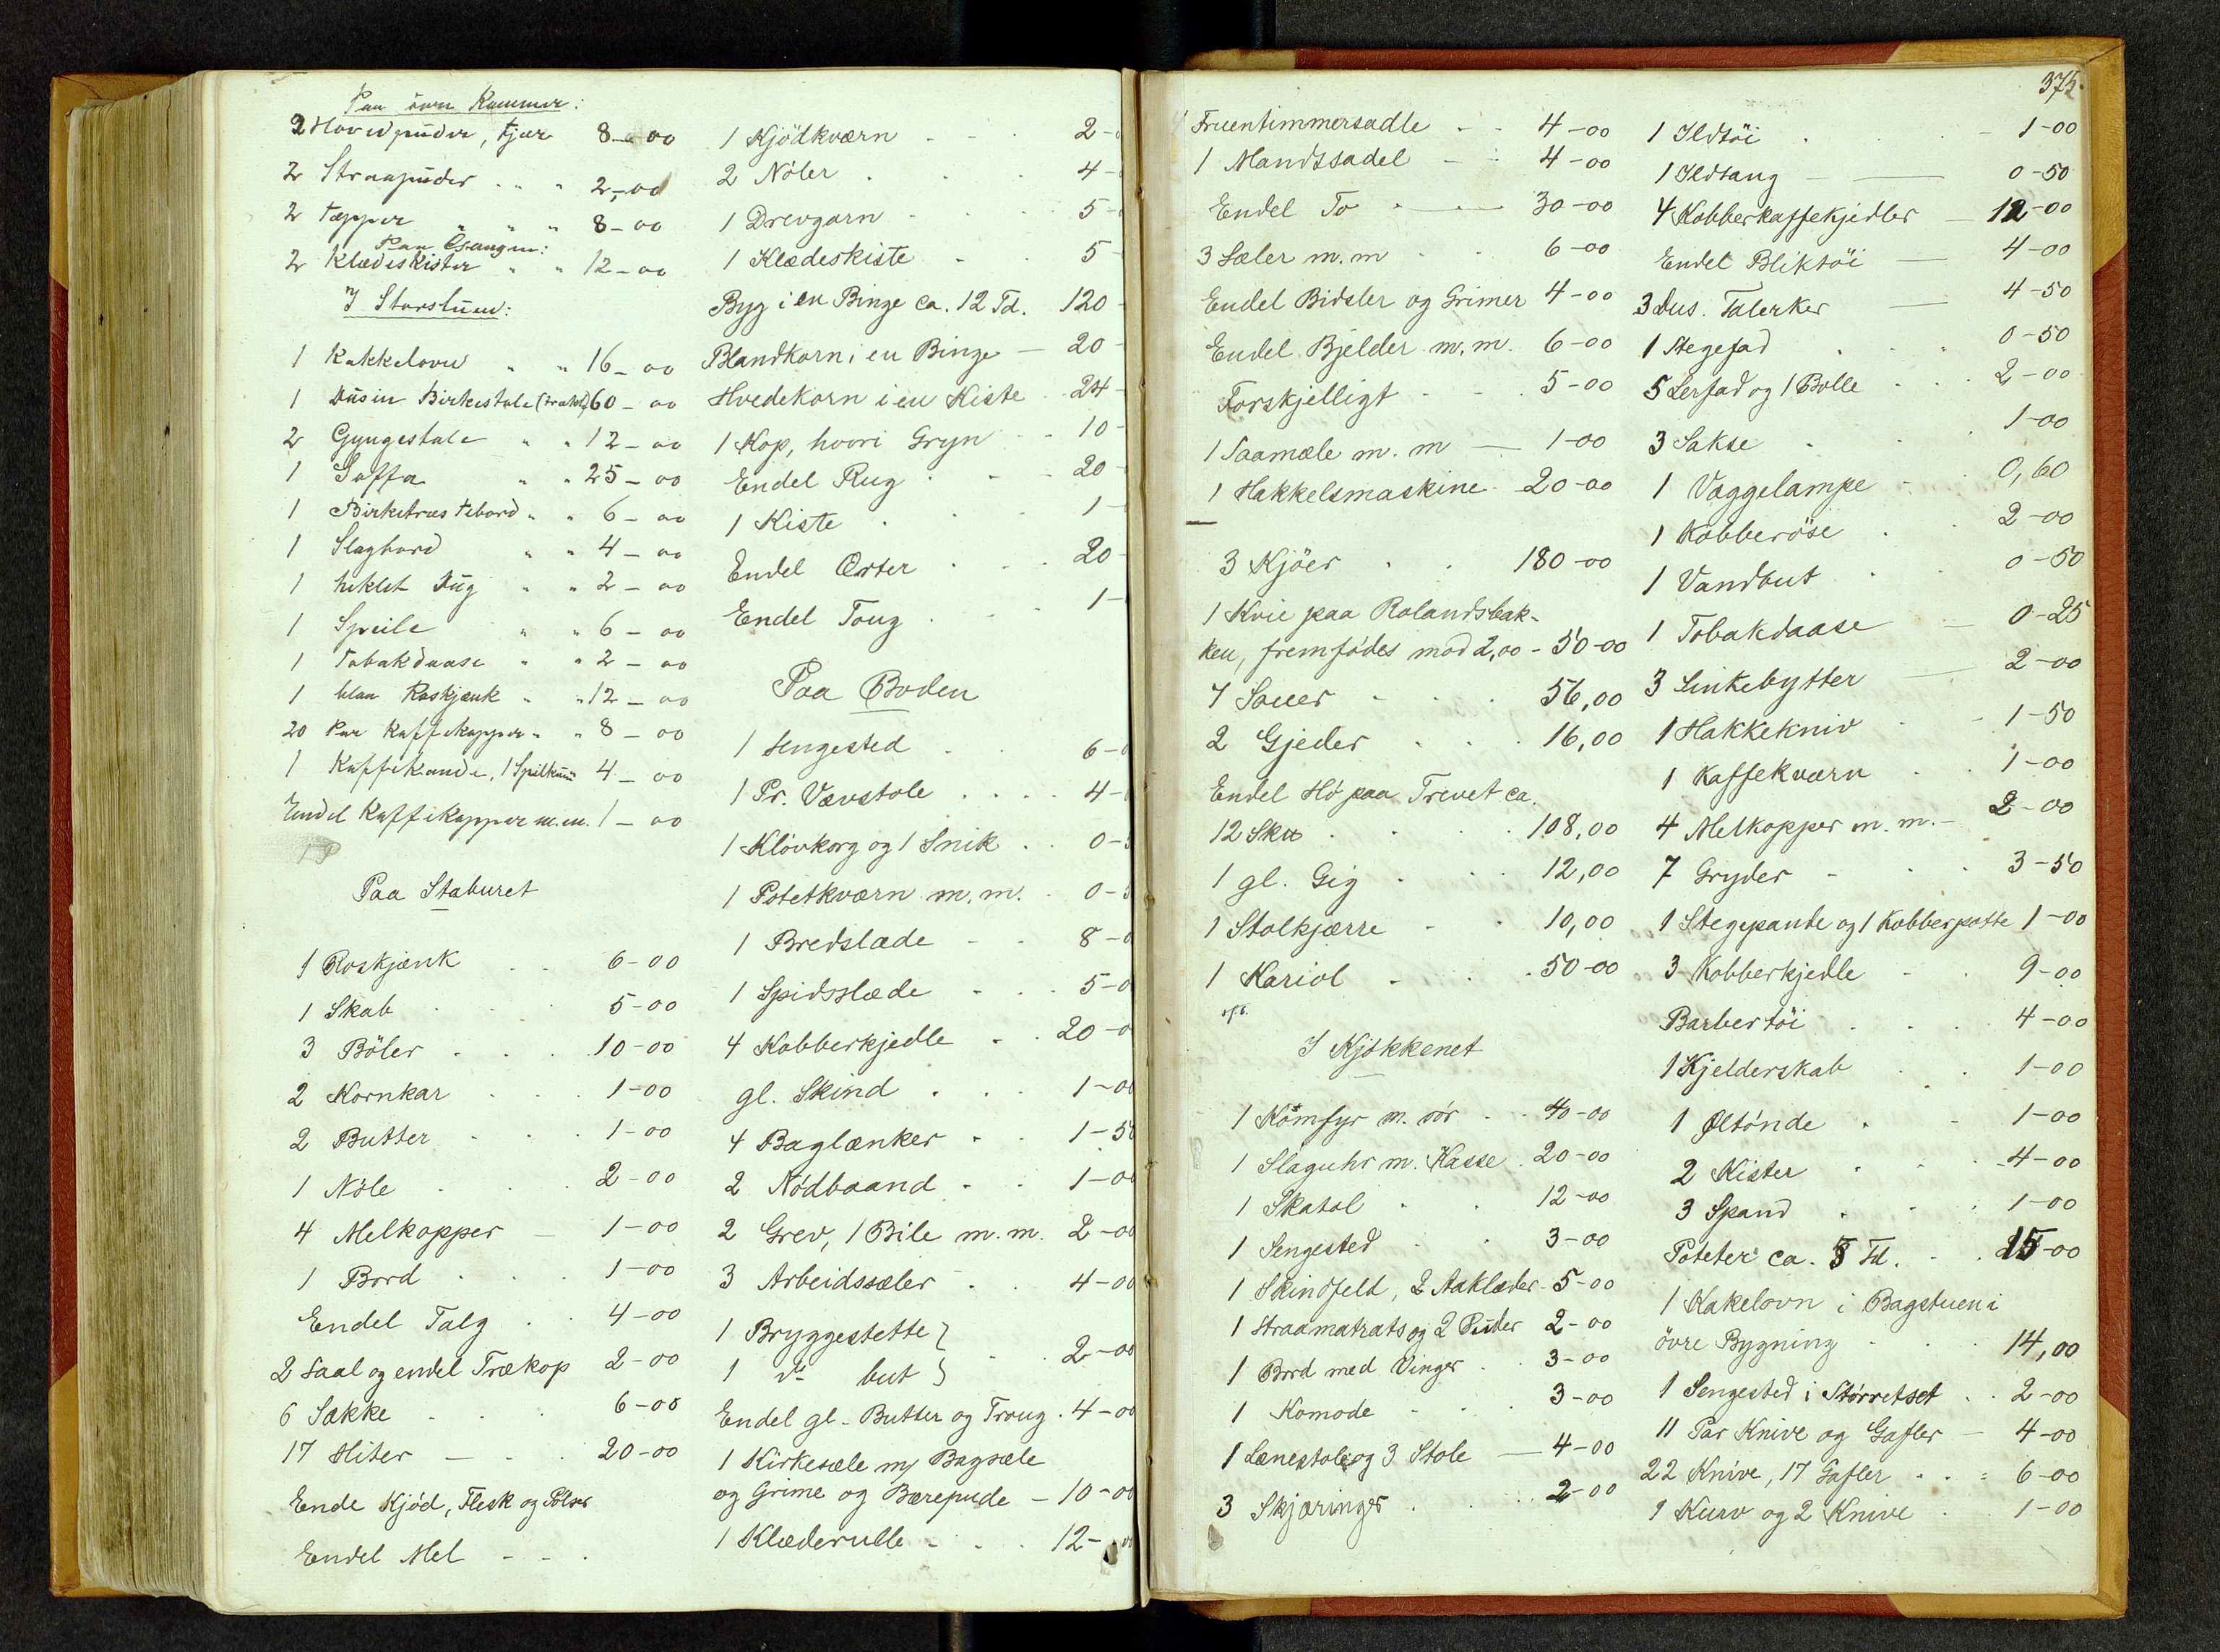 Paa övre Kammer:
2 Hovedpuder, fjær 8-00
2 Straapuder " " " 2,-00
2 tæpper " " " 8-00
Paa Gangen:
2 Klædeskister " " 12-00
I Storstuen:
1 Kakkelovn " " 16-00
1 Dusin Birkestole (trukt) 60-00
2 Gyngestole " " 12-00
1 Soffa " " 25-00
1 Birketræs tebord " " 6-00
1 Slagbord " " 4-00
1 heklet Dug " " 2-00
1 Speile " " 6-00
1 Tobakdaase " " 2-00
1 blaa Roskjænk " " 12-00
20 Par Kaffekopper " " 8-00
1 Kaffekande, 1 Spilkum 4-00
Endel Kaffekopper m.m. 1-00
Paa Staburet
1 Roskjænk . . 6-00
1 Skab . . 5-00
3 Böler . . . 10-00
2 Kornkar . . . 1-00
2 Butter . . . 1-00
1 Nóle . . . 2-00
4 Melkopper - 1-00
1 Bord . . . 1-00
Endel Talg . . 4-00
2 Saal og endel Trækop 2-00
6 Sække . . . 6-00
17 Hiter - . . 20-00
Ende Kjód, Flesk og Pölser
Endel Mel - - .
1 Kjödkværn - - . 2-
2 Nóler . . . 4-
1 Drevgarn - . . 5-
1 Klædeskiste - . 5
Byg i en Binge ca. 12 Td. 120
Blandkorn i en Binge - 20
Hvedekorn i en Kiste . 24
1 Kop, hvori Gryn - - 10
Endel Rug . - - 20
1 Kiste . . . 1-
Endel Ærter . . . 20
Endel Toug . . - 1-
Paa Boden
1 Sengested . . 6-
1 Pr. Vævstole . . . . 4-
1 Klóvkorg og 1 Snik . . 0-
1 Potetkværn m.m. . 0-
1 Bredslæde - - 8-
1 Spidsslæde - - . 5-0
4 Kobberkjedle - . 20-0
gl. Skind . . . 1-00
4 Baglænker . . 1-50
2 Nódbaand . . 1-00
2 Grev, 1 Bile m.m. 2-00
3 Arbeidssæler . . 4-00
1 Bryggestette }
1 do but } . . 2-00
Endel gl. Butter og Troug . 4-00
1 Kirkesæle m/ Bagsæle
og Grime og Bærepude - 10-00
1 Klæderulle - . . 12-00
375.
1 Fruentimmersadle - - 4-00
1 Mandssadel - - 4-00
Endel To . - 30-00
3 Sæler m.m . . 6-00
Endel Bidsler og Grimer 4-00
Endel Bjelder m.m. 6-00
Forskjelligt - . . 5-00
1 Saamæle m.m - 1-00
1 Hakkelsmaskine - 20-00
3 Kjöer . . 180-00
1 Kvie paa Rolandsbak-
ken, fremfódes mod 2,00 - 50-00
7 Sauer - . . 56,00
2 Gjeder . . . 16,00
Endel Hó paa Trevet ca.
12 Sk . . . . 108,00
1 gl. Gig . . . 12,00
1 Stolkjærre - . . 10,00
1 Kariol - . . . 50-00
I Kjókkenet
1 Komfyr m. rór . . 40-00
1 Slaguhr m. Kasse . 20-00
1 Skatol . . 12-00
1 Sengested . . 3-00
1 Skindfeld, 2 Aaklæder - 5-00
1 Straamatrats og 2 Puder 2-00
1 Bord med Vinger . . 3-00
1 Komode - . . 3-00
1 Lænestole og 3 Stole - 4-00
3 Skjæringer . . . 2-00
1 Ildtöi . . - 1-00
1 Ildtang - - 0-50
4 Kobberkaffekjedler - 12-00
Endel Bliktöi - 4-00
3 Dus. Talerker - 4-50
1 Stegefad . . . 0-50
5 Lerfad og 1 Bolle . . . 2-00
3 Sakse . . . 1-00
1 Væggelampe - . 0,60
1 Kobberöse . . 2-00
1 Vandbut . . 0-50
1 Tobakdaase - 0-25
3 Sinkebytter - 2-00
1 Hakkekniv . - 1-50
1 Kaffekværn . . 1-00
4 Melkopper m.m. - 2-00
7 Gryder - . . 3-50
1 Stegepande og 1 Kobberpotte 1-00
3 Kobberkjedle - . 9-00
Barbertöi . . . 4-00
1 Kjelderskab . . 1-00
1 Øltónde . - 1-00
2 Kister . . . 4-00
3 Spand . . . 1-00
Poteter ca. 5 Td. - . 15-00
1 Kakelovn i Bagstuen i
övre Bygning - . . 14,00
1 Sengested i Störretset . . 2-00
11 Par Knive og Gafler - 4-00
22 Knive, 17 Gafler . . = 6-00
1 Kurv og 2 Knive . . 1-00